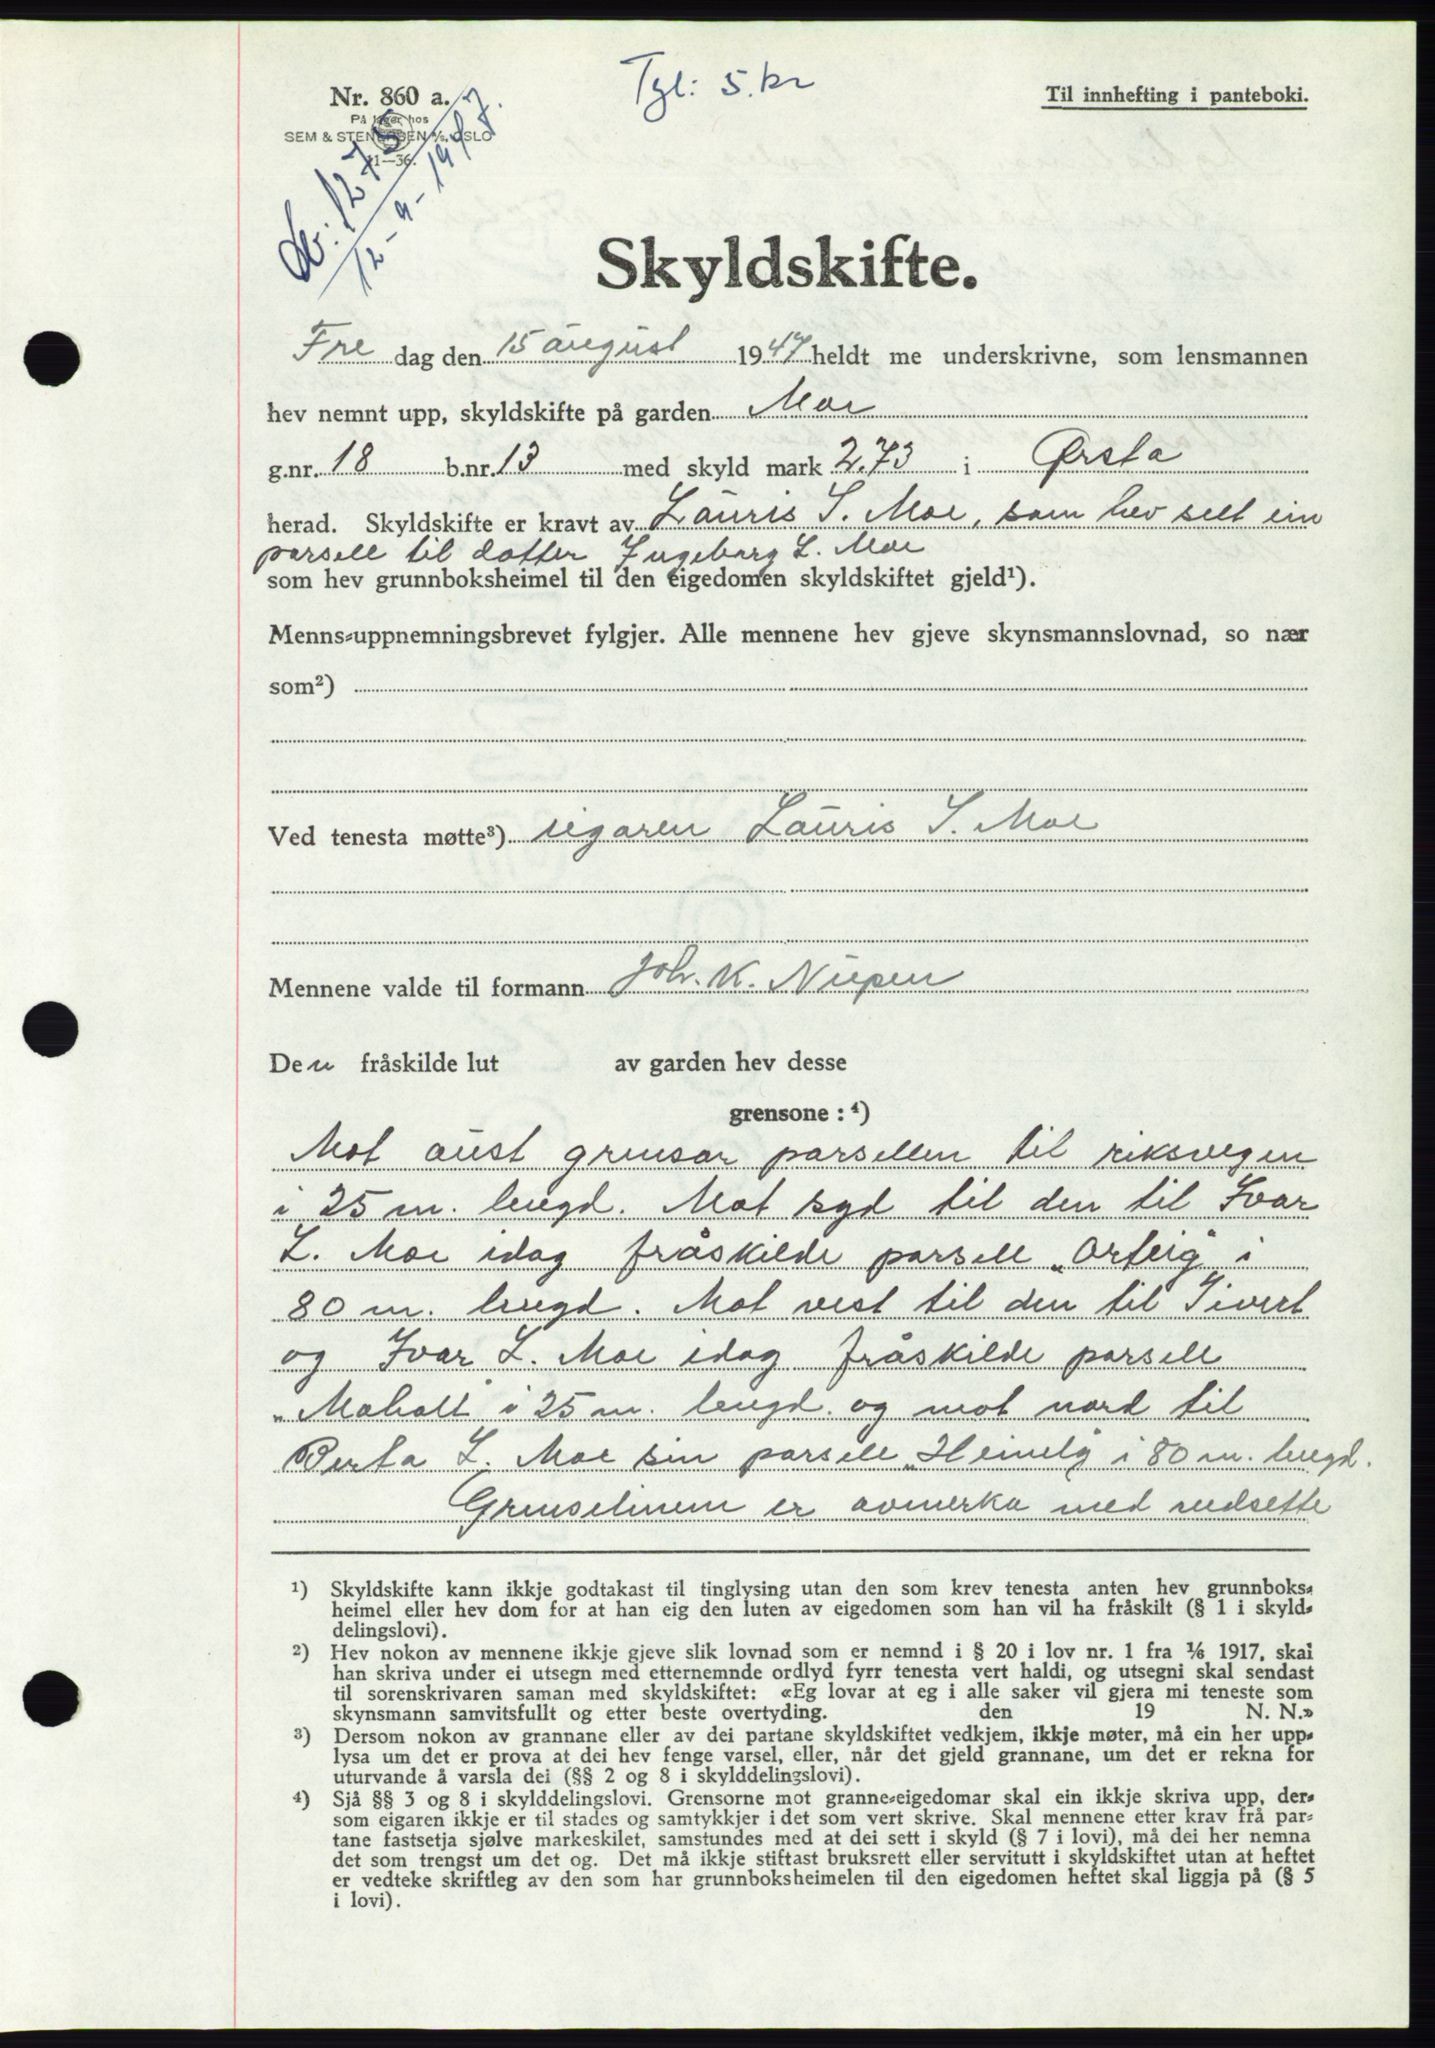 Nr. 860 a.
På lager hos
SEM & STENERSEN A/S, OSLO
11—36.
Tgl: 5. kr
Til innhefting i panteboki.
1275
12-9-1947.
Skyldskifte.
Fre dag den 15 august 1947 heldt me underskrivne, som lensmannen
hev nemnt upp, skyldskifte på garden Moe
g.nr. 18 b.nr. 13 med skyld mark 2.73 i Ørsta
herad. Skyldskifte er kravt av Lauris S. Moe, som hev selt ein
parsell til dotter Ingeborg L. Moe
som hev grunnboksheimel til den eigedomen skyldskiftet gjeld¹).
Menns-uppnemningsbrevet fylgjer. Alle mennene hev gjeve skynsmannslovnad, so nær
som²)
Ved tenesta møtte³) eigaren Lauris S. Moe
Mennene valde til formann Joh. K. Nupen
Den fråskilde lut av garden hev desse
grensone : ⁴)
Mot aust grensar parsellen til riksvegen
i 25 m. lengd. Mot syd til den til Ivar
L. Moe idag fråskilde parsell „Orteig" i
80 m. lengd. Mot vest til den til Sivert
og Ivar L. Moe idag fråskilde parsell
„Moholt" i 25 m. lengd. og mot nord til
Berta L. Moe sin parsell „Heimely" i 80 m. lengd.
Grenselinene er avmerka med nedsette
¹) Skyldskifte kann ikkje godtakast til tinglysing utan den som krev tenesta anten hev grunnboks-
heimel eller hev dom for at han eig den luten av eigedomen som han vil ha fråskilt (§ 1 i skyld-
delingslovi).
²) Hev nokon av mennene ikkje gjeve slik lovnad som er nemnd i § 20 i lov nr. 1 fra 1/6 1917, skal
han skriva under ei utsegn med etternemnde ordlyd fyrr tenesta vert haldi, og utsegni skal sendast
til sorenskrivaren saman med skyldskiftet: «Eg lovar at eg i alle saker vil gjera mi teneste som
skynsmann samvitsfullt og etter beste overtyding. den 19 N. N.»
³) Dersom nokon av grannane eller av dei partane skyldskiftet vedkjem, ikkje møter, må ein her upp-
lysa um det er prova at dei hev fenge varsel, eller, når det gjeld grannane, um det er rekna for
uturvande å varsla dei (§§ 2 og 8 i skylddelingslovi).
⁴) Sjå §§ 3 og 8 i skylddelingslovi. Grensorne mot granne-eigedomar skal ein ikkje skriva upp, der-
som eigaren ikkje er til stades og samtykkjer i det som vert skrive. Skal mennene etter krav frå par-
tane fastsetja sjølve markeskilet, samstundes med at dei sett i skyld (§ 7 i lovi), må dei her nemna
det som trengst um det og. Det må ikkje stiftast bruksrett eller servitutt i skyldskiftet utan at heftet
er vedteke skriftleg av den som har grunnboksheimelen til den eigedomen heftet skal liggja på (§ 5
i lovi).